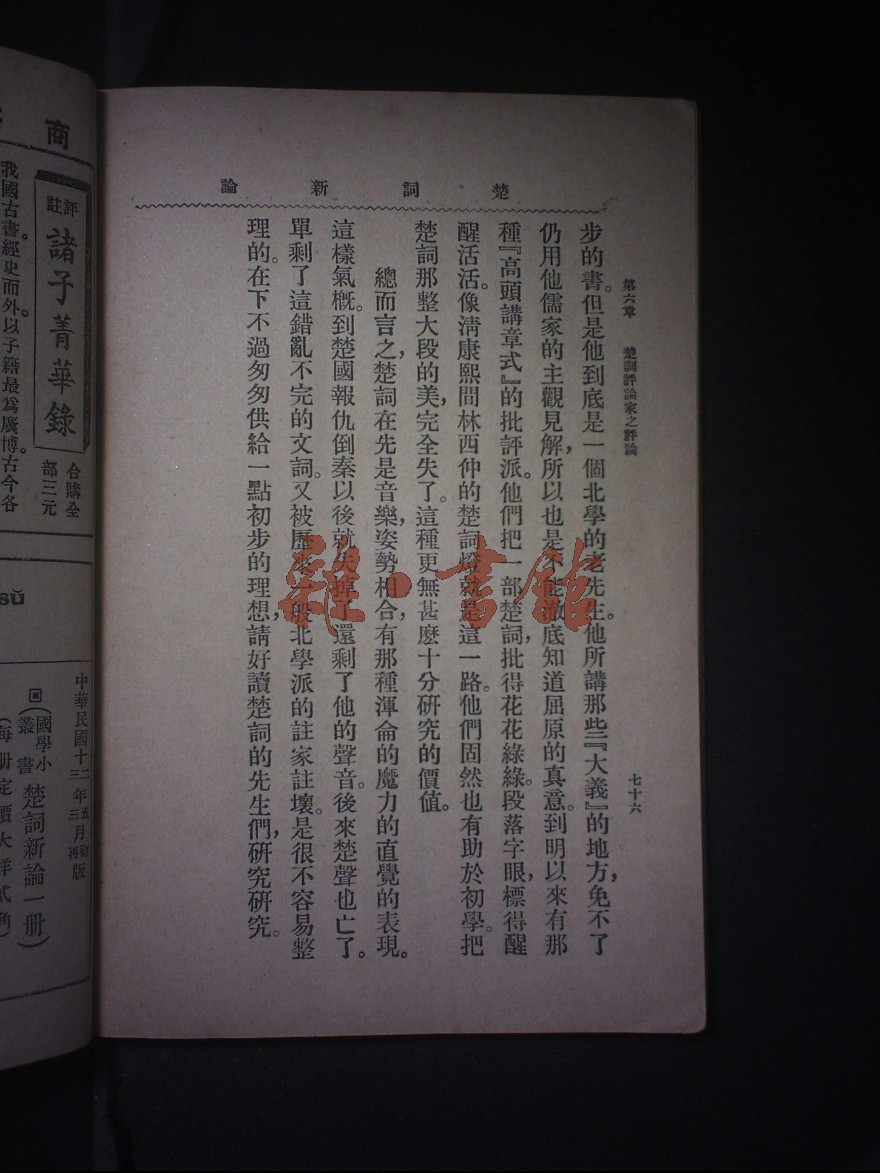 楚詞新論
第六章　楚詞評論家之評論
七十六
步的書。但是他到底是一個北學的老先生。他所講那些『大義』的地方，免不了
仍用他儒家的主觀見解，所以也是不能澈底知道屈原的真意。到明以來有那
種『高頭講章式』的批評派。他們把一部楚詞，批得花花綠綠。段落字眼，標得醒
醒活活。像清康熙間林西仲的楚詞燈就是這一路。他們固然也有助於初學。把
楚詞那整大段的美，完全失了。這種更無甚麼十分研究的價值。
總而言之，楚詞在先是音樂，姿勢相合，有那種渾侖的魔力的直覺的表現。
這樣氣概。到楚國報仇倒秦以後就失掉了還剩了他的聲音。後來楚聲也亡了。
單剩了這錯亂不完的文詞。又被歷來一般北學派的註家註壞。是很不容易整
理的。在下不過匆匆供給一點初步的理想，請好讀楚詞的先生們，研究研究。
商
評註
諸子菁華錄
合購全
部三元
我國古書。經史而外。以子籍最爲廣博。古今各
sŭ
中華民國十二年五月初版
三年三月再版
(國學小叢書)楚詞新論一册)
(每册定價大洋貳角)
雜·書館